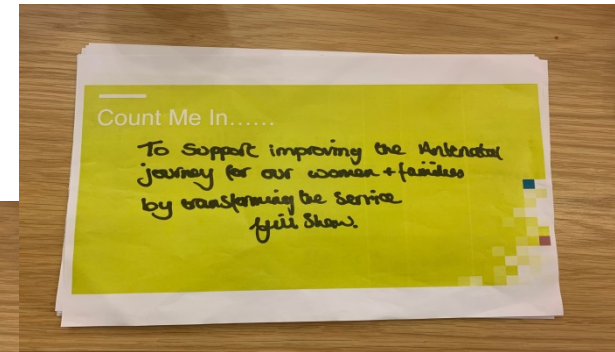 Count Me In......
To Support improving the Antenatal
journey for our women + families
by transforming the Service
Shaw.